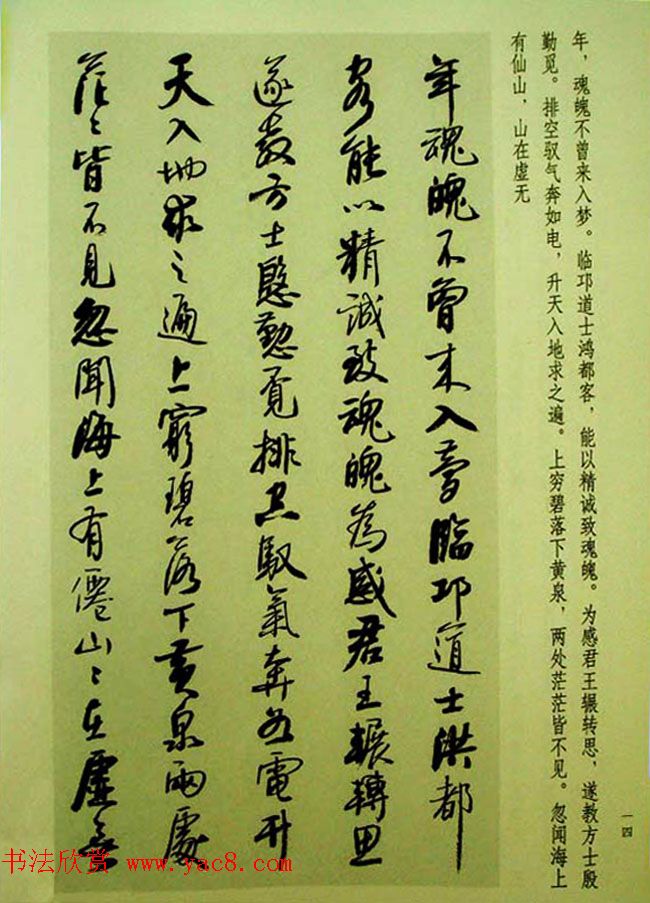 年，魂魄不曾来入梦。临邛道士鸿都客，能以精诚致魂魄。为感君王辗转思，遂教方士殷
勤觅。排空驭气奔如电，升天入地求之遍。上穷碧落下黄泉，两处茫茫皆不见。忽闻海上
有仙山，山在虚无
年魂魄不曾来入夢臨邛道士洪都
客能以精誠致魂魄為感君王輾轉思
遂教方士慇懃覓排空馭氣奔如電升
天入地求之遍上窮碧落下黃泉兩處
茫〻皆不見忽聞海上有僊山〻在虛無
一四
书法欣赏 www.yac8.com